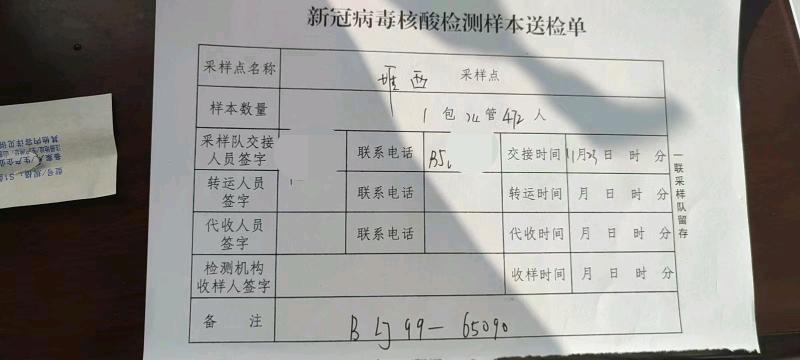 新冠病毒核酸检测样本送检单
采样点名称 西 采样点
样本数量 1 包 管 472 人
采样队交接人员签字 联系电话 交接时间 11月23日 时 分
转运人员签字 联系电话 转运时间 月 日 时 分
代收人员签字 联系电话 代收时间 月 日 时 分
检测机构收样人签字 收样时间 月 日 时 分
备 注 B LJ 99-65090
一联采样队留存
其他内容详见